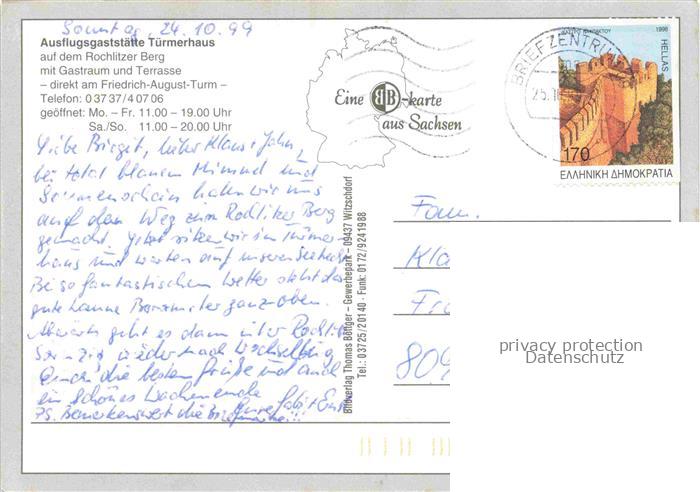 Sonntag, 24.10.99
Ausflugsgaststätte Türmerhaus
auf dem Rochlitzer Berg
mit Gastraum und Terrasse
– direkt am Friedrich-August-Turm –
Telefon: 0 37 37 / 4 07 06
geöffnet: Mo. – Fr. 11.00 – 19.00 Uhr
Sa./So. 11.00 – 20.00 Uhr
Liebe Birgit, lieber Klaus + Jahn,
bei total blauem Himmel und
Sonnenschein haben wir uns
auf den Weg zum Rochlitzer Berg
gemacht. Jetzt sitzen wir im Türmer-
haus und warten auf unser
Bei so fantastischem Wetter steht das
gute Laune Barometer ganz oben.
Abwärts geht es dann über Rochlitz
wieder nach Wechselburg
die besten Grüße und auch
ein schönes Wochenende
PS. Bemerkenswert die Briefmarke!!!
Eure
Eine BB-karte
aus Sachsen
Bildverlag Thomas Böttger – Gewerbepark – 09437 Witzschdorf
Tel.: 03725/20140 · Funk: 0172/9241988
BRIEFZENTRUM
25.10
1998
HELLAS
170
ΕΛΛΗΝΙΚΗ ΔΗΜΟΚΡΑΤΙΑ
Fam.
Kla
Fr
809
privacy protection
Datenschutz